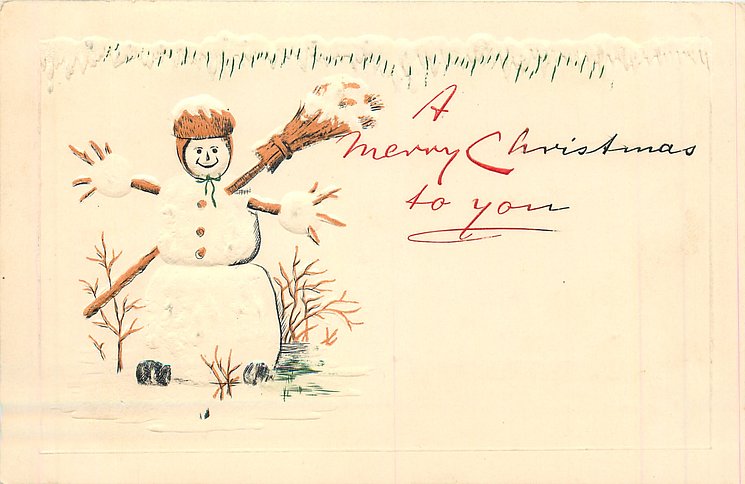 A
Merry Christmas
to you